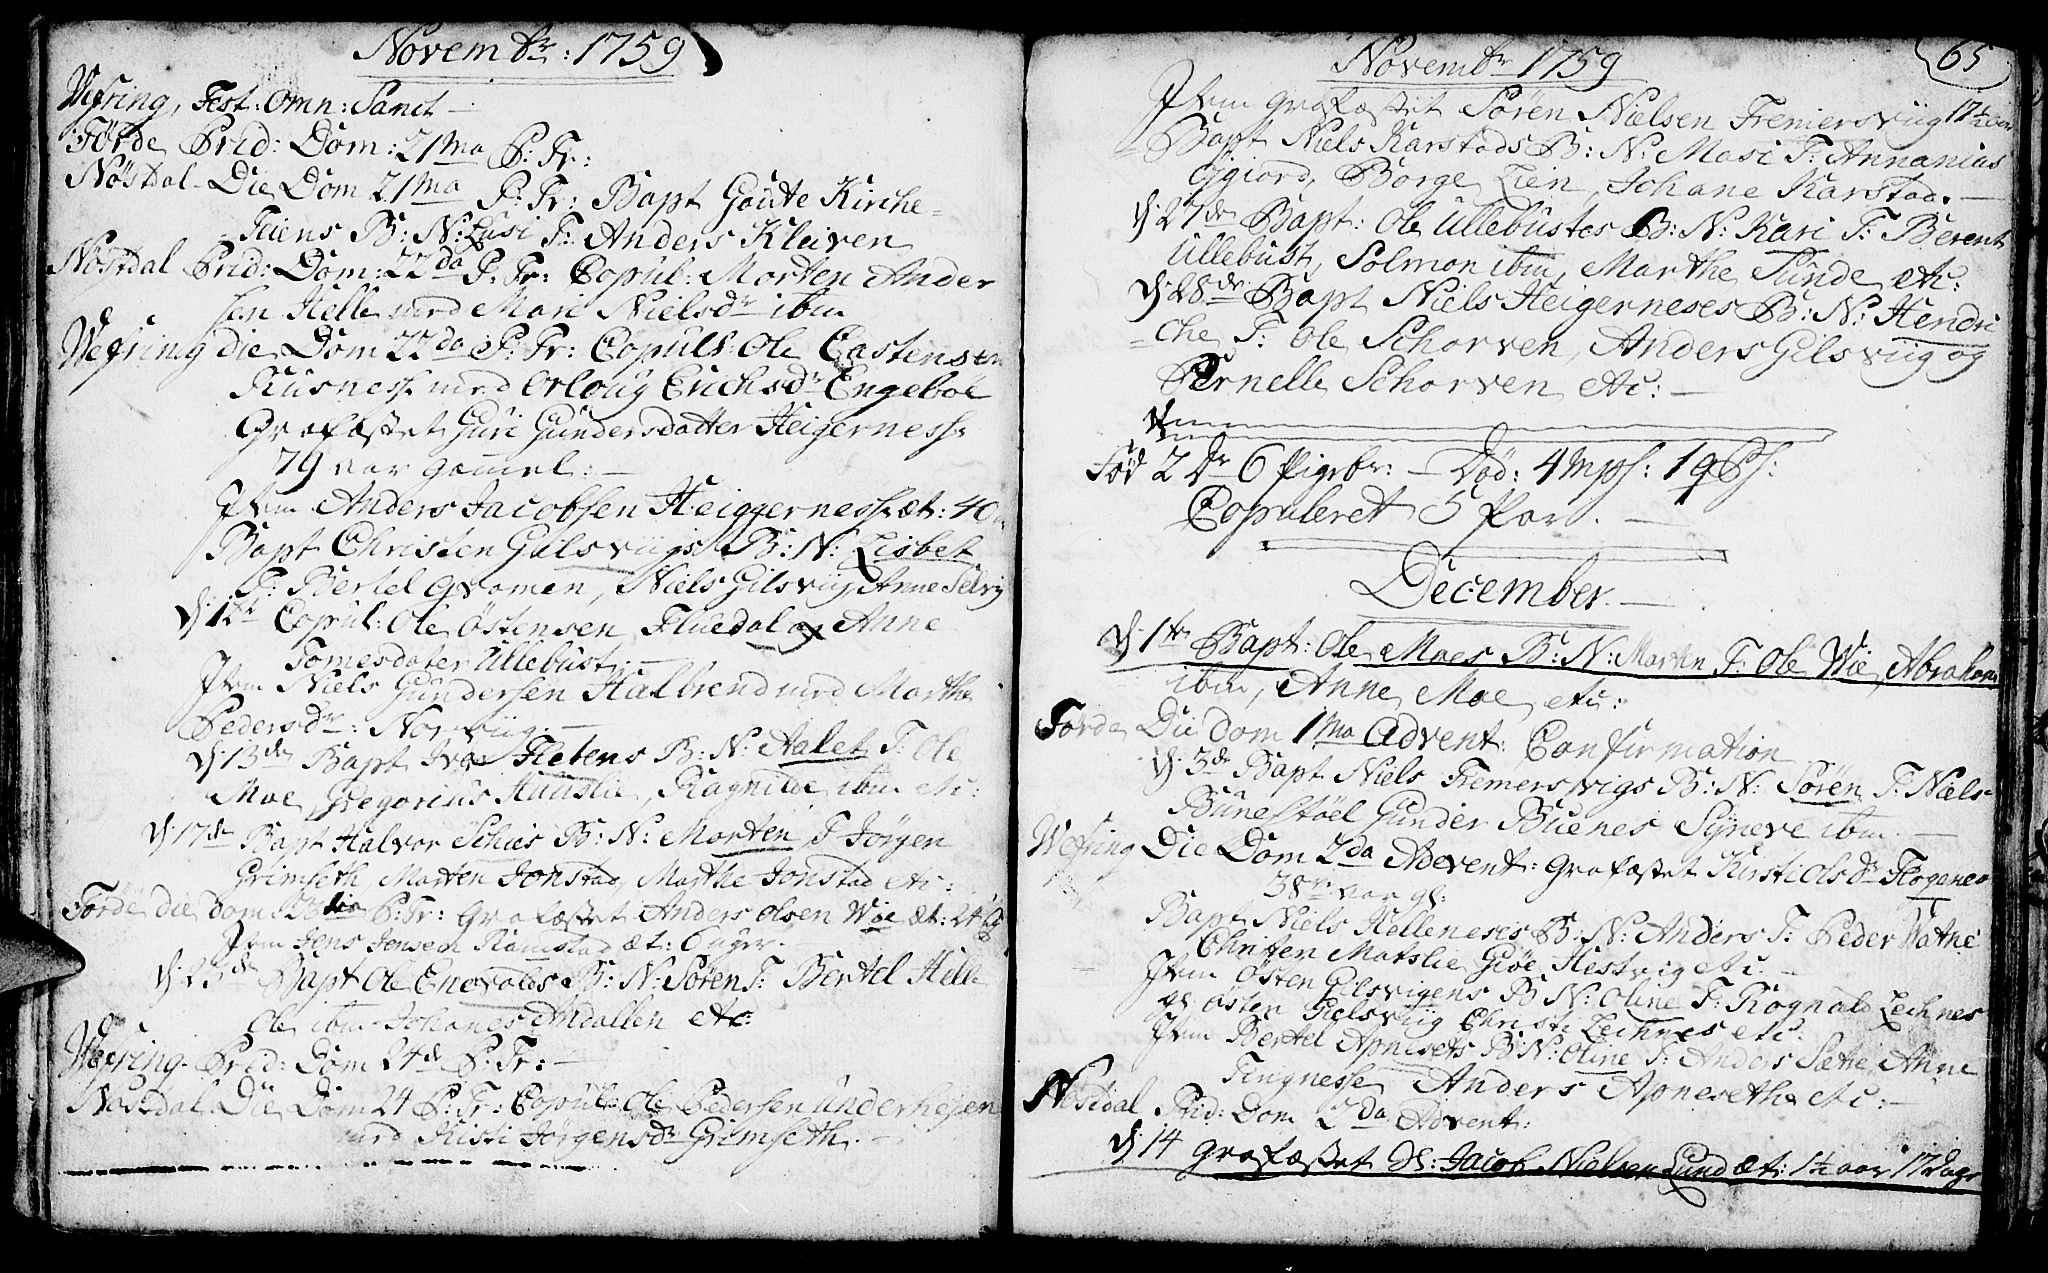 Novembr: 1759
Wefring, Fest: Omn: Sanct
Førde Prid: Dom: 21ma P: Tr:
Nøstdal Die Dom 21ma P: Tr: Bapt Goute Kirche-
Teiens B: N: Lusi F: Anders Kleiven
Nøstdal Prid: Dom: 22da P: Tr: Copul: Morten Ander
sen Helle med Mari Nielsdr ibm
Wefring die Dom 22da P: Tr: Copul: Ole Castensen
Kusness med Orloug Erichsdr Engeboe
Grafæstet Guri Gundersdatter Heigerness
79 aar gamel:
Item Anders Jacobsen Heiggerness æt: 40
Bapt Christen Gilsviigs B: N: Lisbet
F: Bertel Qvamen, Niels Gilsviig, Anne Selvig
d: 12te Copul: Ole Østensen Fluedal og Anne
Tomesdater Ullebust:
Item Niels Gundersen Halbrend med Marthe
Pedersdr: Norviig
d: 13de Bapt Iver Fletens B: N: Aalet F: Ole
Moe, Gregorius Hauslie, Ragnilde ibm etc:
d: 17de Bapt Halvor Schies B: N: Morten F Jørgen
Grimseth, Morten Jonstad, Marthe Jonstad etc:
Førde die Dom 23tia P: Tr: Grafæstet Anders Olsen Wie æt: 24
Item Jens Jensen Ramstad æt: 6 uger.
d: 23de Bapt Ole Enevolds B: N: Søren F: Bertel Helle
Ole ibm Johanes Andallen etc:
Wefring. Prid: Dom: 24de P: Tr:
Nøstdal Die Dom 24 P: Tr: Copul: Ole Pedersen Underheien
med Kisti Jørgensdr Grimseth.
65
Novembr 1759
Item Grafæstet Søren Nielsen Fremersviig 17½
Bapt Niels Karstads B: N: Masi F: Annanias
Øgiord, Børge Lien, Johane Karstad.
d: 27de Bapt: Ole Ullebustes B: N: Kari F: Berent
Ullebust, Solmon ibm, Marthe Sunde etc:
d: 28de Bapt Niels Heigerneses B: N: Hendri
che F: Ole Schorven, Anders Gilsviig og
Pernelle Schorven etc:
Fød 2 Dr 6 Pigebr: Død: 4 Mps: 1 qps:
Copuleret 5 Par.
December.
d: 1te Bapt: Ole Moes B: N: Marten F: Ole Wie, Abraham
ibm, Anne Moe etc:
Førde Die Dom 1ma Advent: Confirmation
d: 3de Bapt Niels Fremersvigs B: N: Søren F: Niels
Bunestøel Gunder Buenes Syneve ibm
Wefring Die Dom 2da Advent: Grafæstet Kirsti Olsdr
38 aar gl:
Bapt Niels Helleneses B: N: Anders F: Peder Watne
Christen Matslie Giøe Hestvig etc:
Item Østen Gilsvigens B N: Oline F: Rognald Lechnes
gl: Østen Gielsviig Christi Lechnes etc:
Item Bertel Apnesets B: N: Oline F: Anders Sætte, Anne
Tingnesse Anders Apneseth etc:
Nøstdal Prid: Dom 2da Advent:
d: 14 Grafæstet Sl: Jacob Nielsen Lund æt: 1½ aar 17 dage